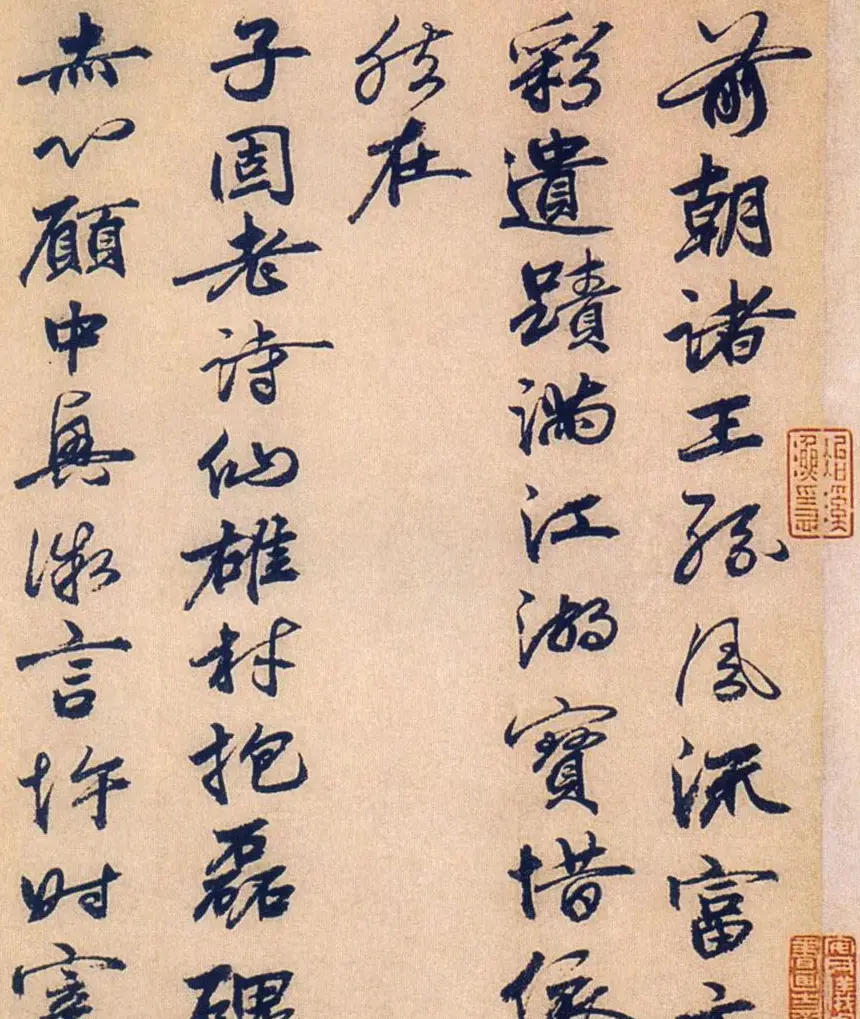 前朝諸王孫風流富
彩遺蹟滿江湖寶惜
然在
子固老詩仙雄材抱磊
赤心願中興言忤時